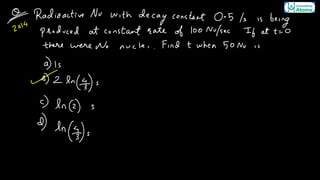 Q Radioactive Nu with decay constant 0.5 /s is being
2014
produced at constant rate of 100 Nu/sec If at t=0
there were No nuclei. Find t when 50 Nu is
a) 1s
b) 2 ln(4/3) s
c) ln(2) s
d) ln(4/3) s
Atoms